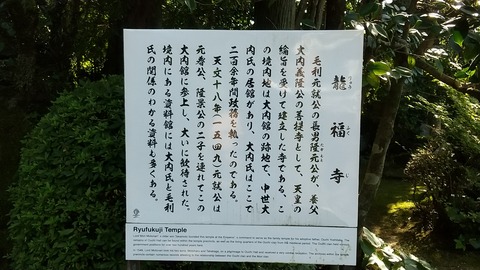 龍福寺
りゅう ふく じ
毛利元就公の長男隆元公が、義父
大内義隆公の菩提寺として、天皇の
綸旨を受けて建立した寺である。こ
の境内地は大内館の跡地で、中世大
内氏の居館があり、大内氏はここで
二百余年間政務を執ったのである。
天文十八年(一五四九)元就公は
元春公、隆景公の二子を連れてこの
大内館に参上し、大いに歓待された。
境内にある資料館には大内氏と毛利
氏の関係のわかる資料も多くある。
Ryufukuji Temple